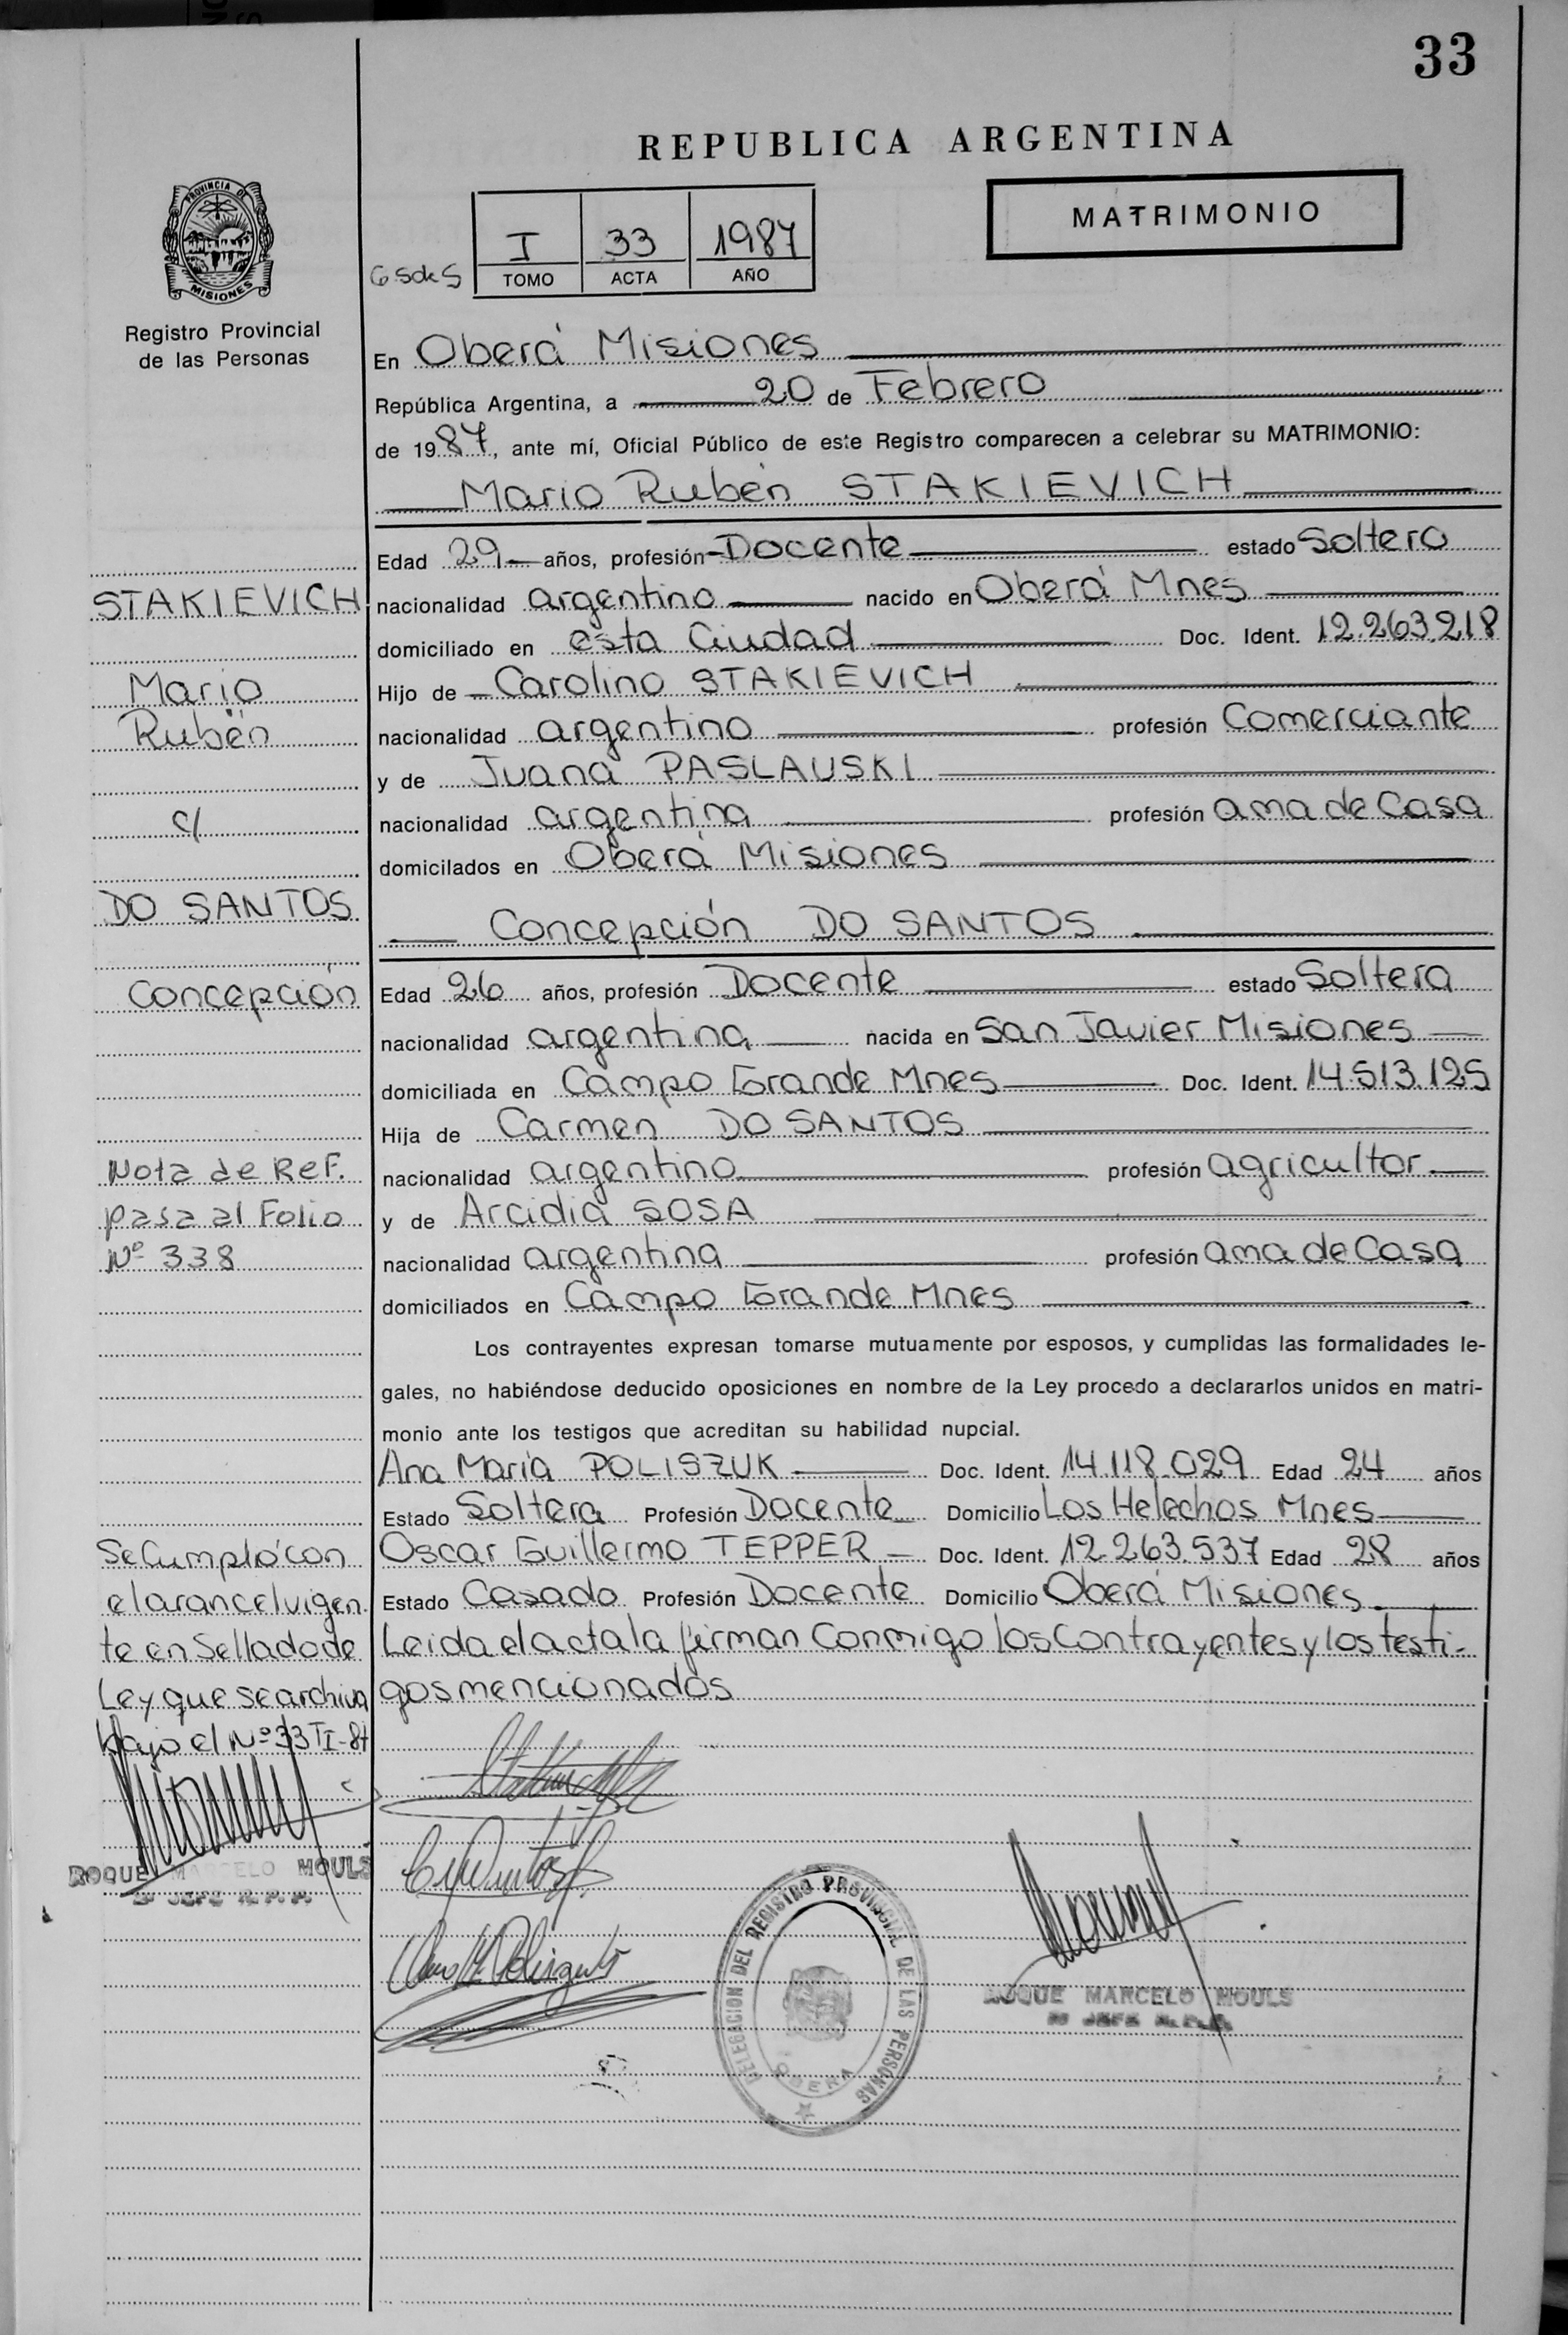 33
REPUBLICA ARGENTINA
MATRIMONIO
PROVINCIA DE
MISIONES
Registro Provincial
de las Personas
I 33 1987
TOMO ACTA AÑO
En Oberá Misiones
República Argentina, a 20 de Febrero
de 1987, ante mí, Oficial Público de este Registro comparecen a celebrar su MATRIMONIO:
Mario Rubén STAKIEVICH
Edad 29 años, profesión Docente estado Soltero
nacionalidad argentino nacido en Oberá Mnes
domiciliado en esta Ciudad Doc. Ident. 12.263.218
Hijo de Carolino STAKIEVICH
nacionalidad argentino profesión Comerciante
y de Juana PASLAUSKI
nacionalidad argentina profesión ama de Casa
domicilados en Oberá Misiones
Concepción DO SANTOS
Edad 26 años, profesión Docente estado Soltera
nacionalidad argentina nacida en San Javier Misiones
domiciliada en Campo Grande Mnes Doc. Ident. 14.513.125
Hija de Carmen DO SANTOS
nacionalidad argentino profesión agricultor
y de Arcidia SOSA
nacionalidad argentina profesión ama de Casa
domiciliados en Campo Grande Mnes
Los contrayentes expresan tomarse mutuamente por esposos, y cumplidas las formalidades le-
gales, no habiéndose deducido oposiciones en nombre de la Ley procedo a declararlos unidos en matri-
monio ante los testigos que acreditan su habilidad nupcial.
Ana María POLISZUK Doc. Ident. 14.118.029 Edad 24 años
Estado Soltera Profesión Docente Domicilio Los Helechos Mnes
Oscar Guillermo TEPPER Doc. Ident. 12.263.537 Edad 28 años
Estado Casado Profesión Docente Domicilio Oberá Misiones
Leida el acta la firman Conmigo los Contrayentes y los testi-
gos mencionados
STAKIEVICH
Mario
Rubén
c/
DO SANTOS
Concepción
Nota de Ref.
pasa al Folio
Nº 338
Se Cumpló con
el arancel vigen
te en Sellado de
Ley que se archiva
bajo el Nº 33 TI-87
ROQUE MARCELO MOULS
JEFE R. P. P.
DELEGACION DEL REGISTRO PROVINCIAL DE LAS PERSONAS
OBERA
ROQUE MARCELO MOULS
JEFE